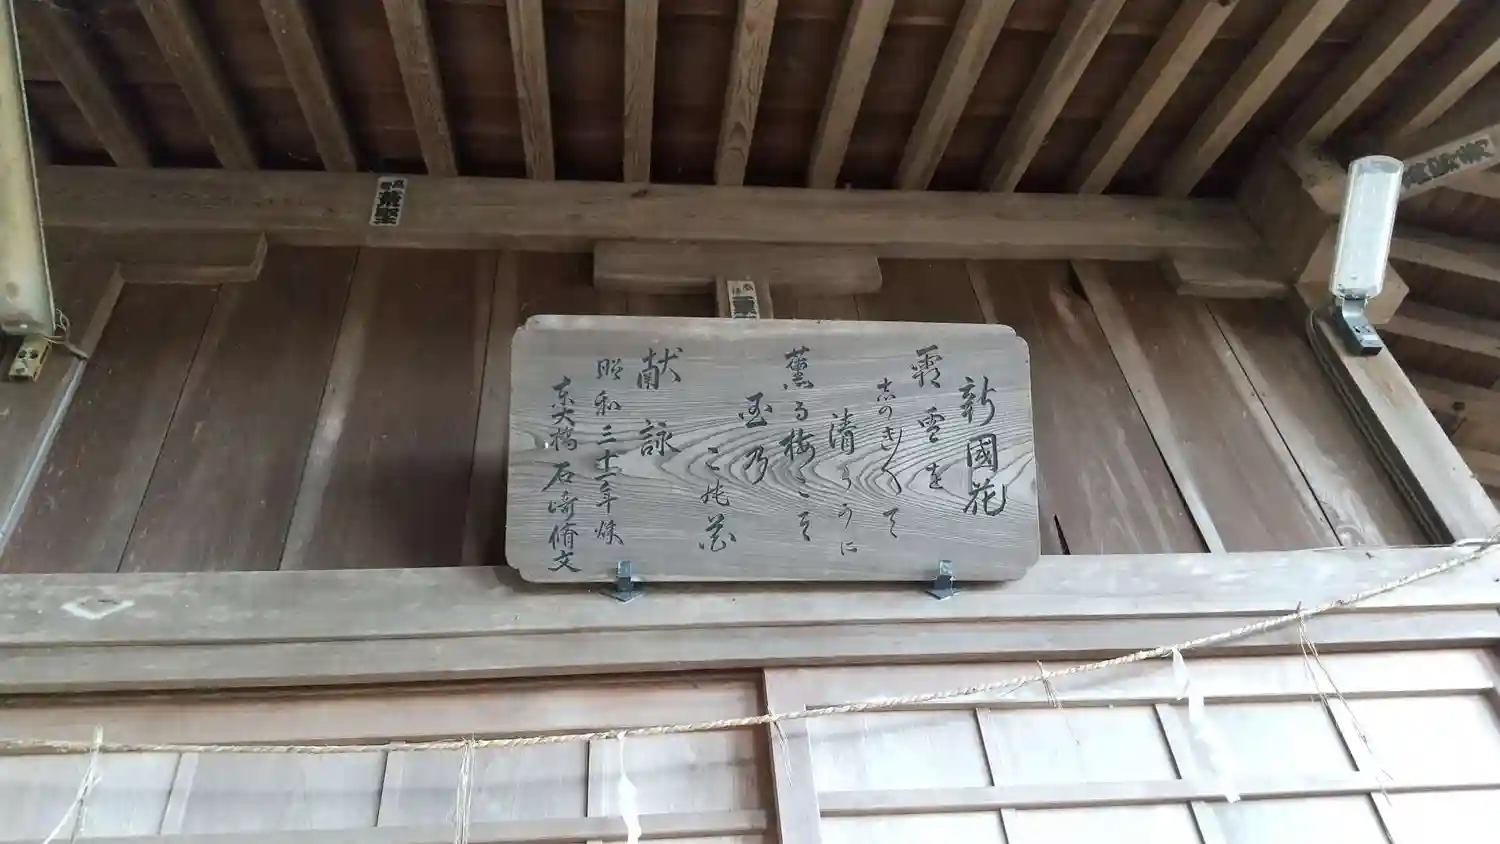 新國花
霜雪を
志のきゝて
清らうに
薫る梅こそ
国乃
こ
献詠
昭和三十一年
東大橋 石崎脩文